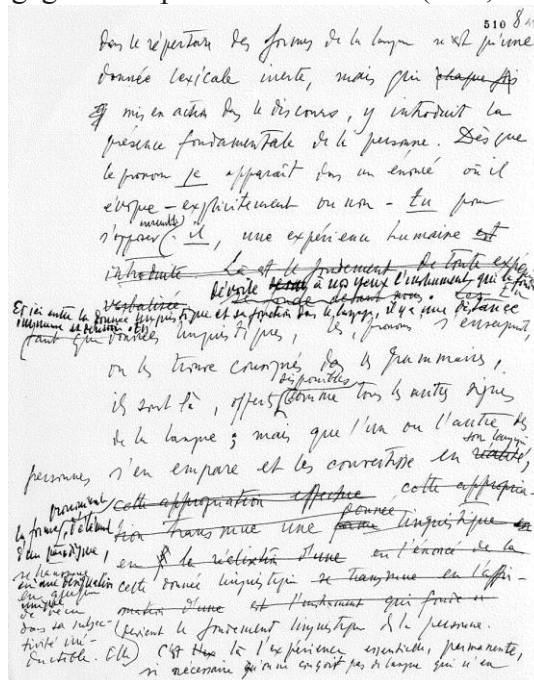 510 8
dans le répertoire des formes de la langue n'est qu'une
donnée lexicale inerte, mais qui chaque fois
mis en action dans le discours, y introduit la
présence fondamentale de la personne. Dès que
le pronom je apparaît dans un énoncé où il
évoque – explicitement ou non – tu pour
s'opposer ensemble à il, une expérience humaine est
introduite Là est le fondement de toute
dévoile à nos yeux l'instrument qui la fonde
verbalisée
Et ici entre la donnée linguistique et sa fonction dans le langage, il y a une distance
immense
tant que données linguistiques, les pronoms s'enseignent,
on les trouve consignés dans les grammaires,
disponibles
ils sont là, offerts comme tous les autres signes
de la langue ; mais que l'un ou l'autre des
son langage
personnes s'en empare et les convertisse en réalité,
cette appropriation effective cette appropria-
tion transmue une donnée forme linguistique en
en la réélisation d'une en l'énoncé de la
cette donnée linguistique se transmue en l'affir-
mation d'une est l'instrument qui fonde
devient le fondement linguistique de la personne.
C'est là l'expérience essentielle, permanente,
si nécessaire qu'on ne conçoit pas de langue qui n'en
le pronom
la forme, l'élément
d'un paradigme,
se transmue
en une désignation
unique
dans sa subjec-
tivité irré-
ductible. Elle